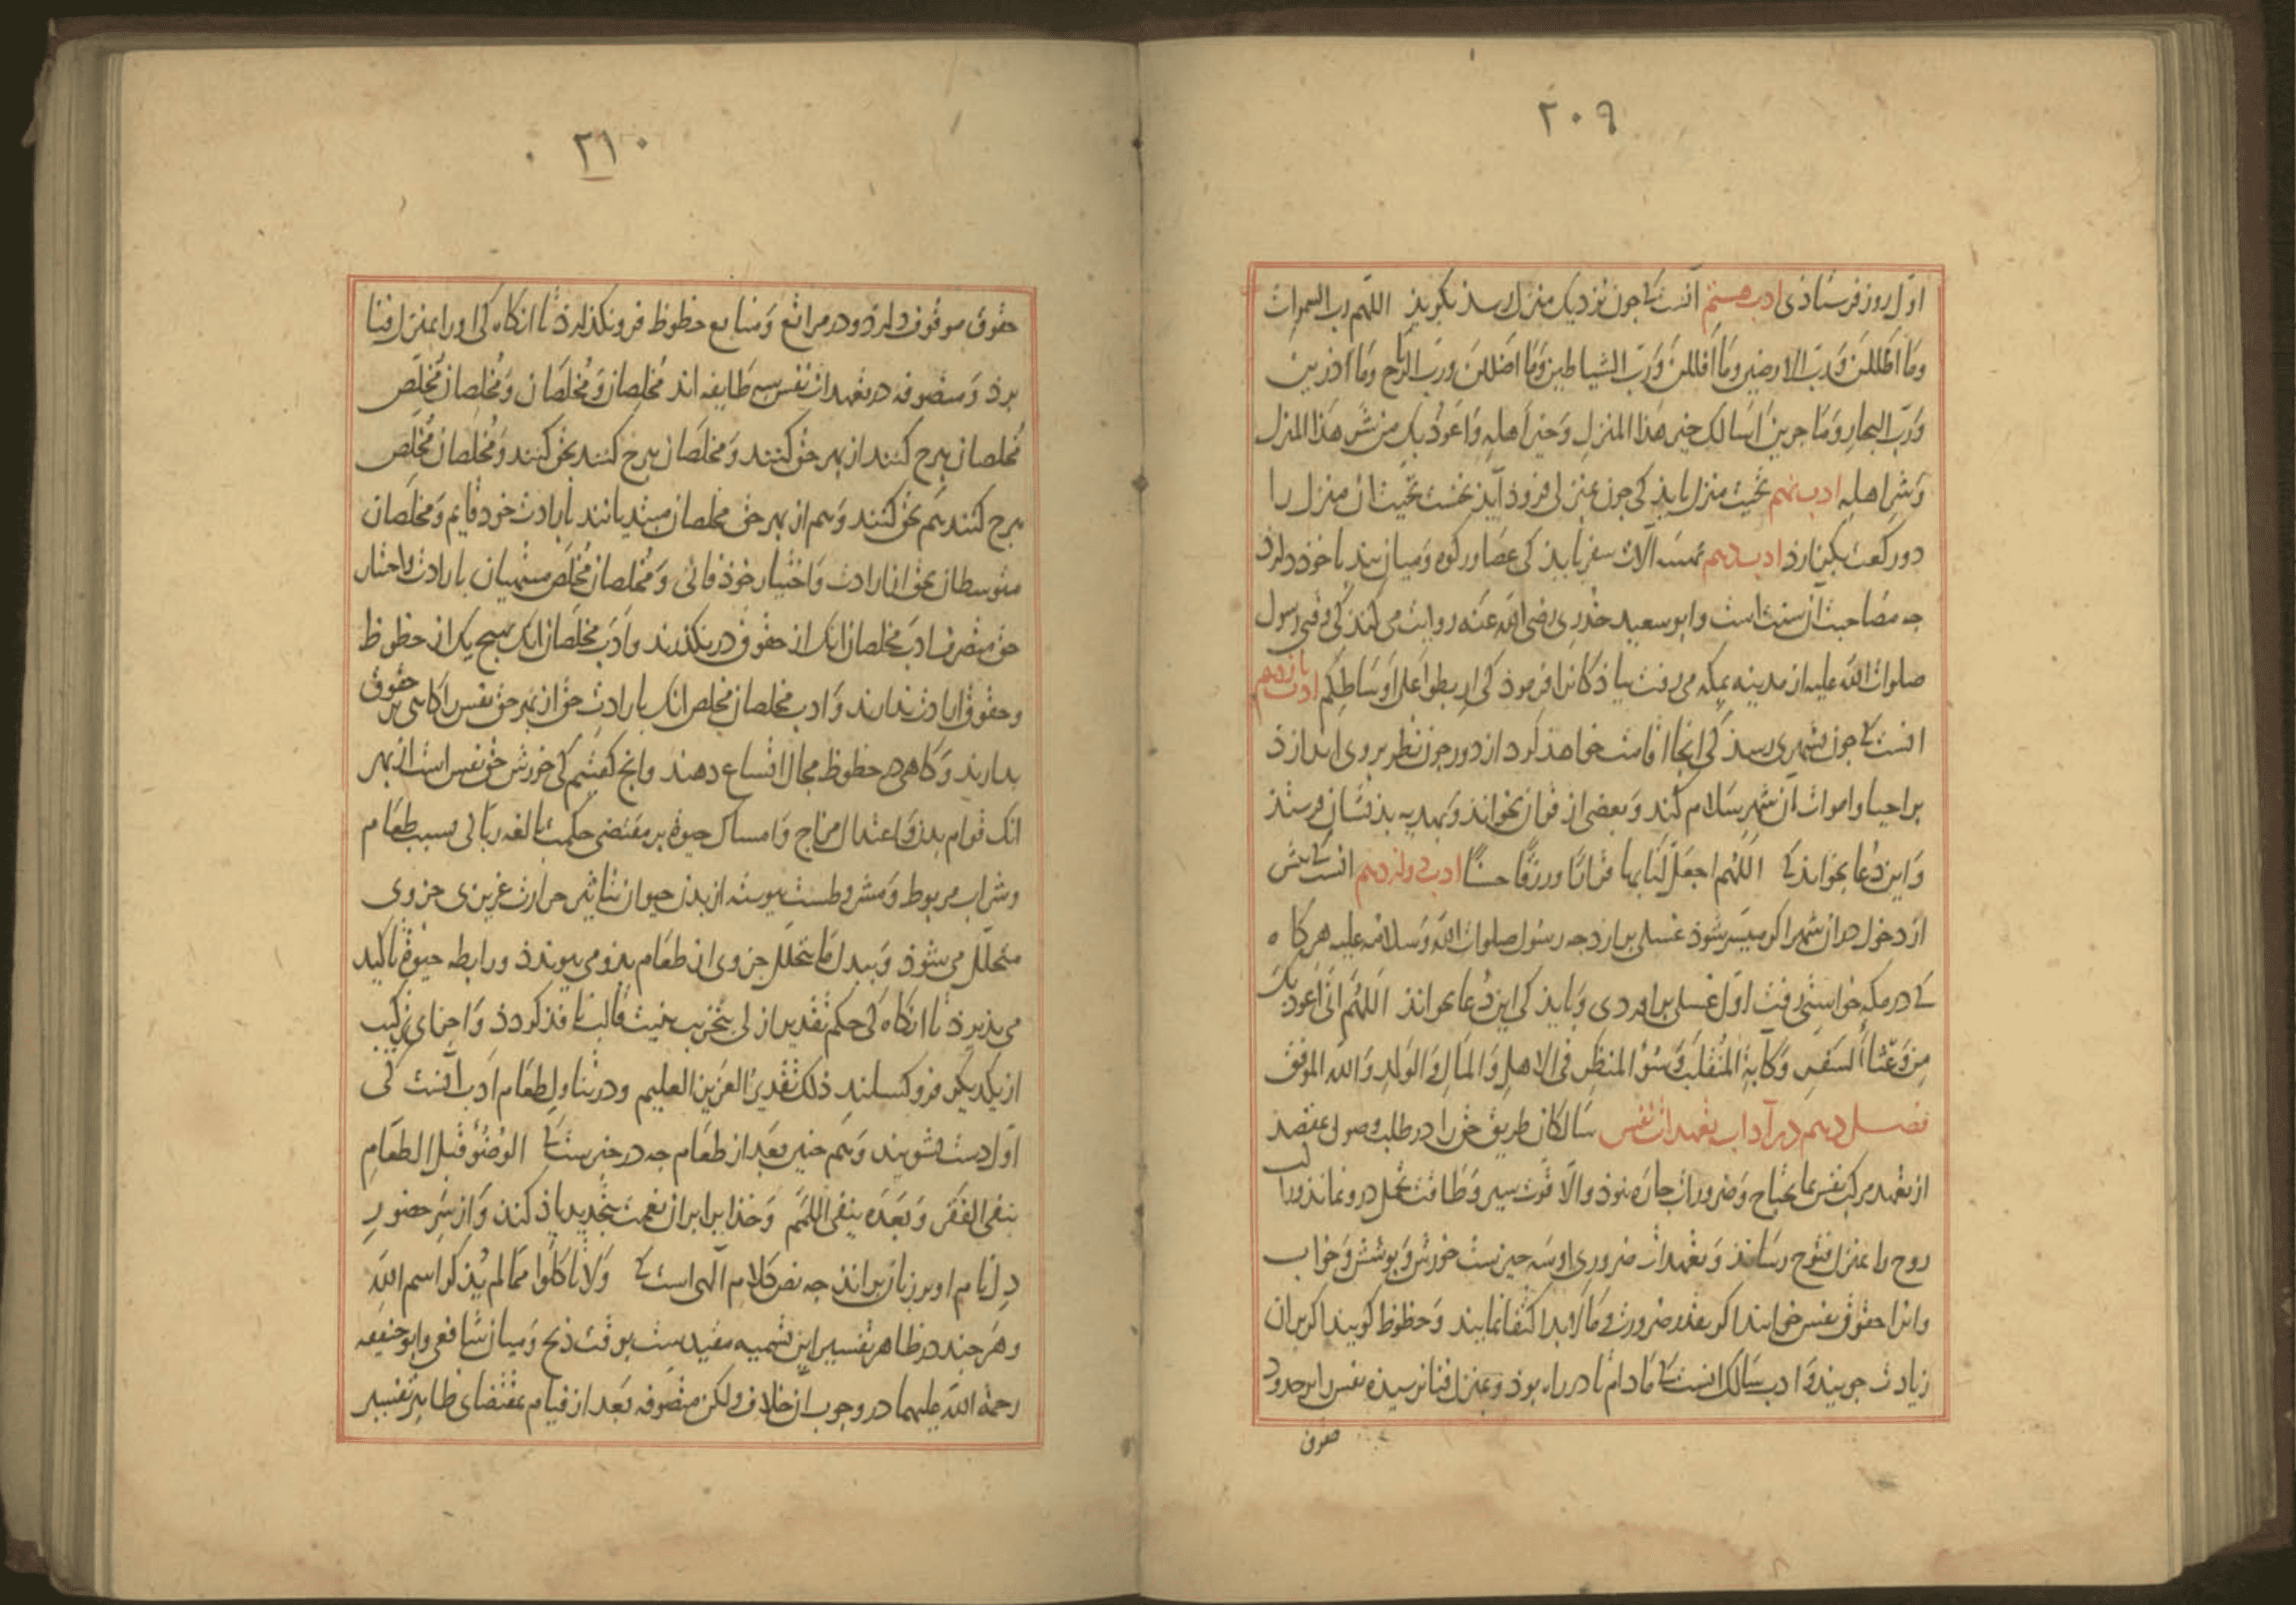 ۲۰۹
اول روز فرستاذی ادب هشتم آنست کی جون نزدیک منزل رسد بکویذ اللهم رب السموات
وما اظللن ورب الارضین وما اقللن ورب الشیاطین وما اضللن ورب الریاح وما اذرین
ورب البحار وما جرین اسالک خیر هذا المنزل وخیر اهله واعوذ بک من شر هذا المنزل
وشر اهله ادب نهم تحیت منزل بایذ کی جون بمنزلی فروذ آیذ نخست تحیت ان منزل را
دو رکعت بکزارذ ادب دهم آلات سفر بایذ کی عصا ورکوه ومیان بند با خوذ دارذ
جه مصاحبت آن سنت است وابو سعید خدری رضی الله عنه روایت می کند کی وقتی رسول
صلوات الله علیه از مدینه بمکه می رفت بیاذکانرا فرموذ کی اربطوا علی اوساطکم ادب یازدهم
انست کی جون بشهری رسذ کی انجا اقامت خواهذ کرد از دور جون نظر بر وی اندازذ
بر احیا واموات ان شهر سلام کند وبعضی از قران بخواند وبهدیه بذیشان فرستذ
واین دعا بخواند کی اللهم اجعل لنا بها قرارا ورزقا حسنا ادب دوازدهم انست کی بیش
از دخول در ان شهر اکر میسر شوذ غسلی برارد جه رسول صلوات الله وسلامه علیه هر کاه
کی در مکه خواستی رفت اول غسلی براوردی وبایذ کی این دعا بخواند اللهم انی اعوذ بک
من وعثاء السفر وکآبة المنقلب وسوء المنظر فی الاهل والمال والولد والله الموفق
فصل دهم در آداب تعهدات نفس سالکان طریق حق را در طلب وصول بمقصد
از تعهد مرکب نفس بما یحتاج وضروریات جاره نبوذ والا قوت سیر وطاقت تحمل درو نماند وراکب
روح را بمنزل فتوح رساند وتعهدات ضروری او سه جیزست خورش وبوشش وخواب
وانرا حقوق نفس خوانند اکر بقدر ضرورت وما لا بد اکتفا نمایند وحظوظ کویند اکر بران
زیادت جویند وادب سالک انست کی مادام تا در راه بوذ وبمنزل فنا نرسیده نفس را بر حدود
حقوق
۲۱۰
حقوق موقوف دارذ ودر مراتع ومنابع حظوظ فرو نکذارذ تا انکاه کی اورا بمنزل فنا
برذ ومتصوفه در تعهدات نفس سه طایفه اند مخلصان ومخلصان ومخلصان مخلص
مخلصان هرج کنند از بهر حق کنند ومخلصان هرج کنند بحق کنند ومخلصان مخلص
هرج کنند هم بحق کنند وهم از بهر حق مخلصان مبتدیانند بارادت خود قایم ومخلصان
متوسطان بحق از ارادت واختیار خوذ فانی ومخلصان مخلص منتهیان بارادت واختیار
حق متصرف ادب مخلصان انک از حقوق در نکذرند وادب مخلصان انک هیج یک از حظوظ
وحقوق ارادت ندارند وادب مخلصان مخلص انک بارادت حق ان بهر حق نفس را کاهی بر حقوق
بدارند وکاهی در حظوظ مجال اتساع دهند وانج کفتیم کی خورش حق نفس است از بهر
انک قوام بدن واعتدال مزاج وامساک حیوة بر مقتضی حکمت بالغه ربانی بسبب طعام
وشراب مربوط ومشروطست بیوسته از بدن حیوان بتاثیر حرارت غریزی جزوی
متحلل می شوذ وببدل ما یتحلل جزوی از طعام بذو می بیوندد ورابطه حیوة تاکید
می بذیرذ تا انکاه کی حکم تقدیر ازلی بتخریب بنیت قالب نافذ کردد واجزای ترکیب
از یکدیکر فرو کسلند ذلک تقدیر العزیز العلیم ودر تناول طعام ادب آنست کی
اول دست بشویند وهم جنین بعد از طعام جه در خبرست کی الوضوء قبل الطعام
ینفی الفقر وبعده ینفی اللمم وخذایرا بران نعمت بتجدید یاذ کنند واز سر حضور
دل نام او بر زبان براند جه نص کلام الهی است کی ولا تاکلوا مما لم یذکر اسم الله
وهر جند در ظاهر تفسیر این تسمیه مقیدست بوقت ذبح ومیان شافعی وابو حنیفه
رحمة الله علیهما در وجوب آن خلاف ولکن متصوفه بعد از قیام بمقتضای ظاهر تفسیر